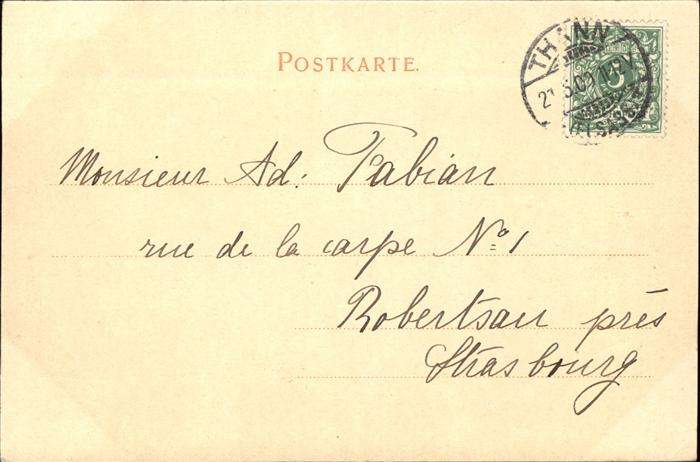 POSTKARTE.
THANN
(ELSASS)
5
Monsieur Ad: Fabian
rue de la carpe № 1
Robertsau près
Strasbourg